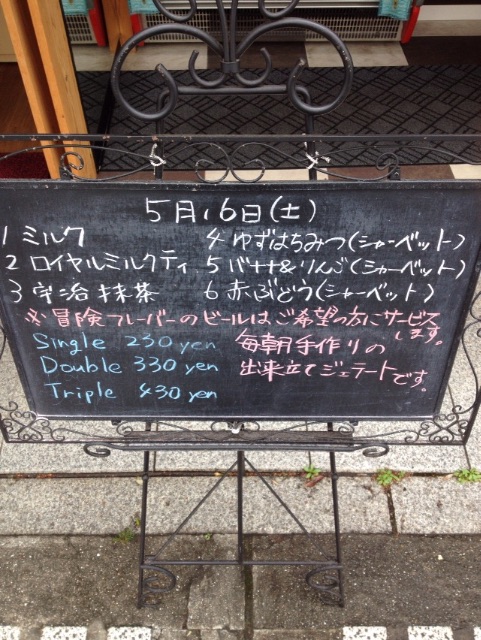 5月16日(土)
1 ミルク
2 ロイヤルミルクティ
3 宇治抹茶
4 ゆずはちみつ(シャーベット)
5 バナナ&りんご(シャーベット)
6 赤ぶどう(シャーベット)
※冒険フレーバーのビールはご希望の方にサービスします。
Single 230 yen
Double 330 yen
Triple 430 yen
毎朝手作りの
出来立てジェラートです。